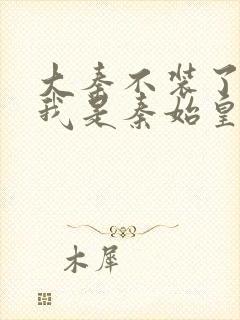 大秦不装了
我是秦始皇
木犀